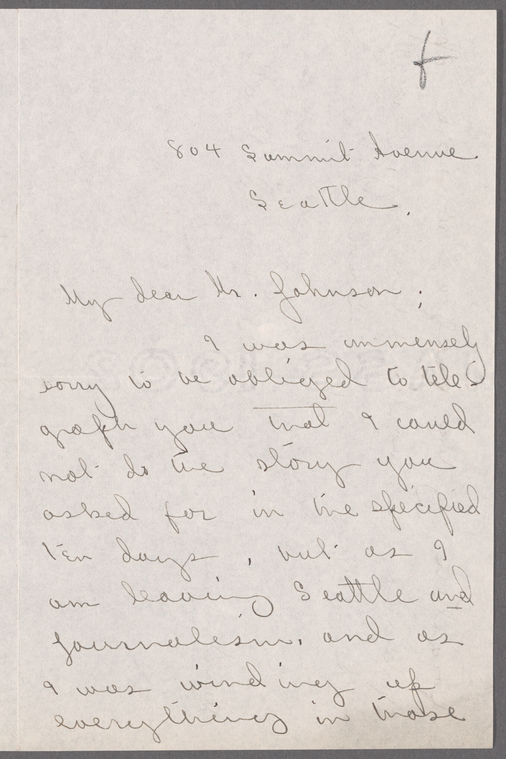 f
804 Summit Avenue
Seattle.
My dear Mr. Johnson;
I was immensely
sorry to be obliged to tele-
graph you that I could
not do the story you
asked for in the specified
ten days, but as I
am leaving Seattle and
journalism, and as
I was winding up
everything in those